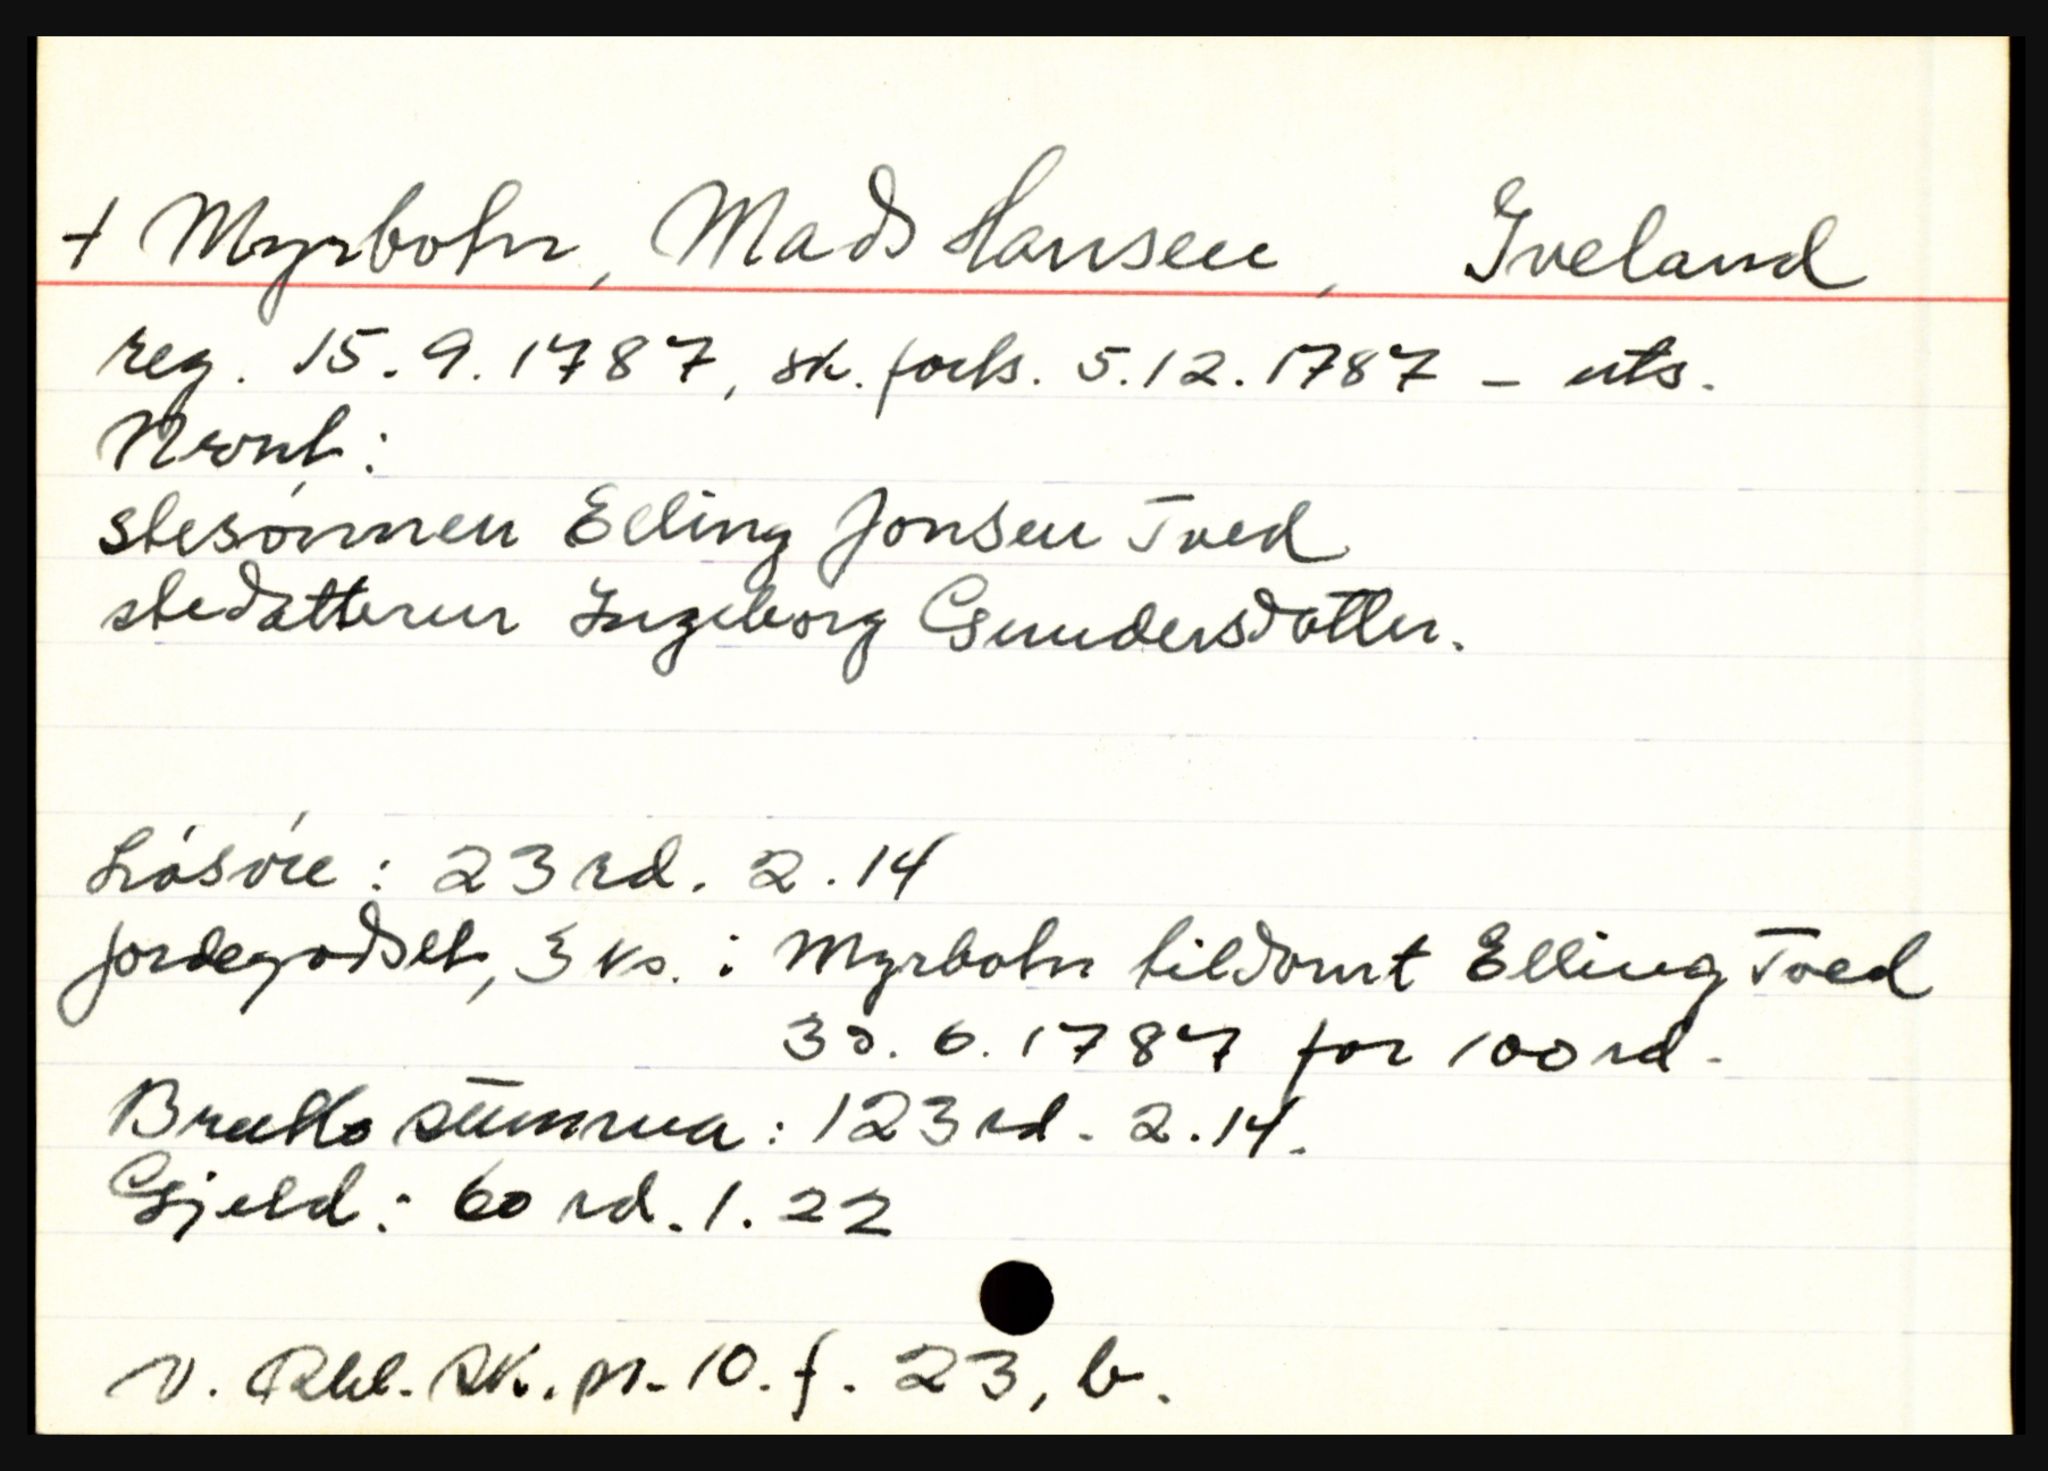 + Myrbohn, Mads Hansen, Iveland
reg. 15.9.1787, sk. forts. 5.12.1787 – uts.
Nevnt:
stesønnen Elling Jonsen Tved
stedatteren Ingeborg Gundersdotter.
Lösöre: 23 rd. 2.14
jordegodset, 3 ks. i Myrbohn tildømt Elling Tved
30.6.1787 for 100 rd.
Brutto summa: 123 rd. 2.14.
Gjeld: 60 rd. 1.22
v. Rbl. sk. pr. 10. f. 23, b.